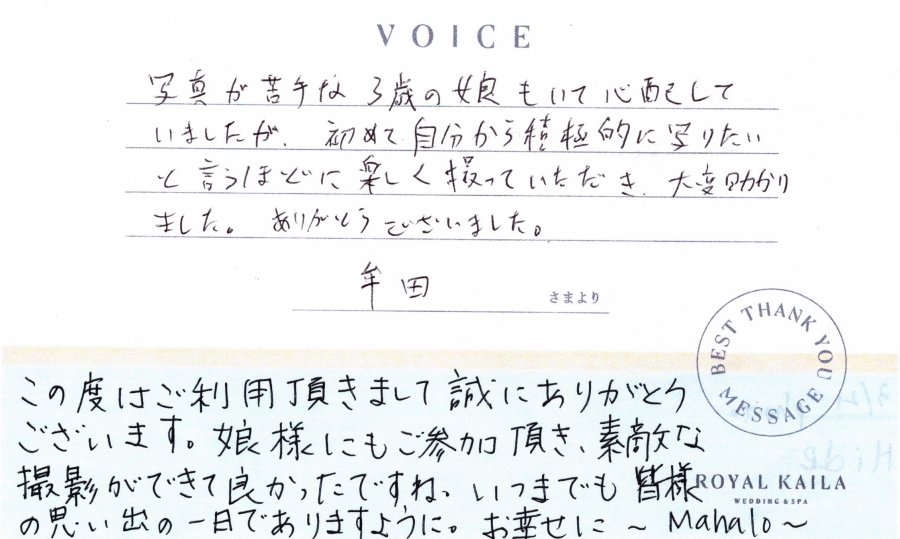 VOICE
写真が苦手な3歳の娘もいて心配して
いましたが、初めて自分から積極的に写りたい
と言うほどに楽しく撮っていただき、大変助かり
ました。ありがとうございました。
牟田 さまより
BEST THANK YOU MESSAGE
この度はご利用頂きまして誠にありがとう
ございます。娘様にもご参加頂き、素敵な
撮影ができて良かったですね、いつまでも皆様
の思い出の一日でありますように。お幸せに〜Mahalo〜
ROYAL KAILA
WEDDING & SPA